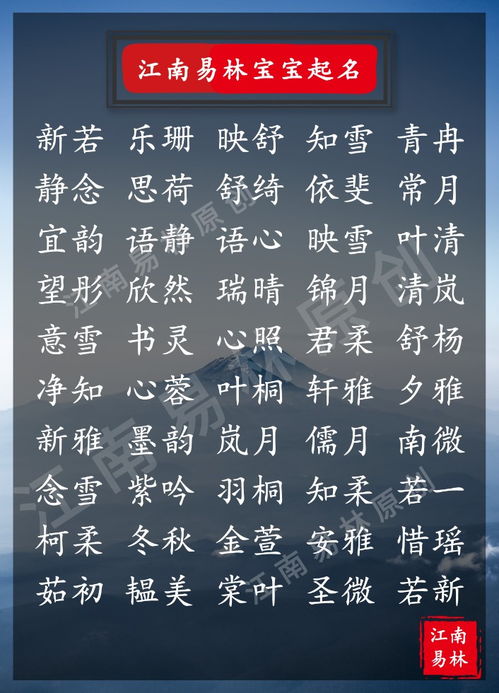 江南易林宝宝起名
新若 乐珊 映舒 知雪 青冉
静念 思荷 舒绮 依斐 常月
宜韵 语静 语心 映雪 叶清
望彤 欣然 瑞晴 锦月 清岚
意雪 书灵 心照 君柔 舒杨
净知 心蓉 叶桐 轩雅 夕雅
新雅 墨韵 岚月 儒月 南微
念雪 紫吟 羽桐 知柔 若一
柯柔 冬秋 金萱 安雅 惜瑶
茹初 韫美 棠叶 圣微 若新
江南易林原创
江南易林原创
江南易林原创
江南
易林